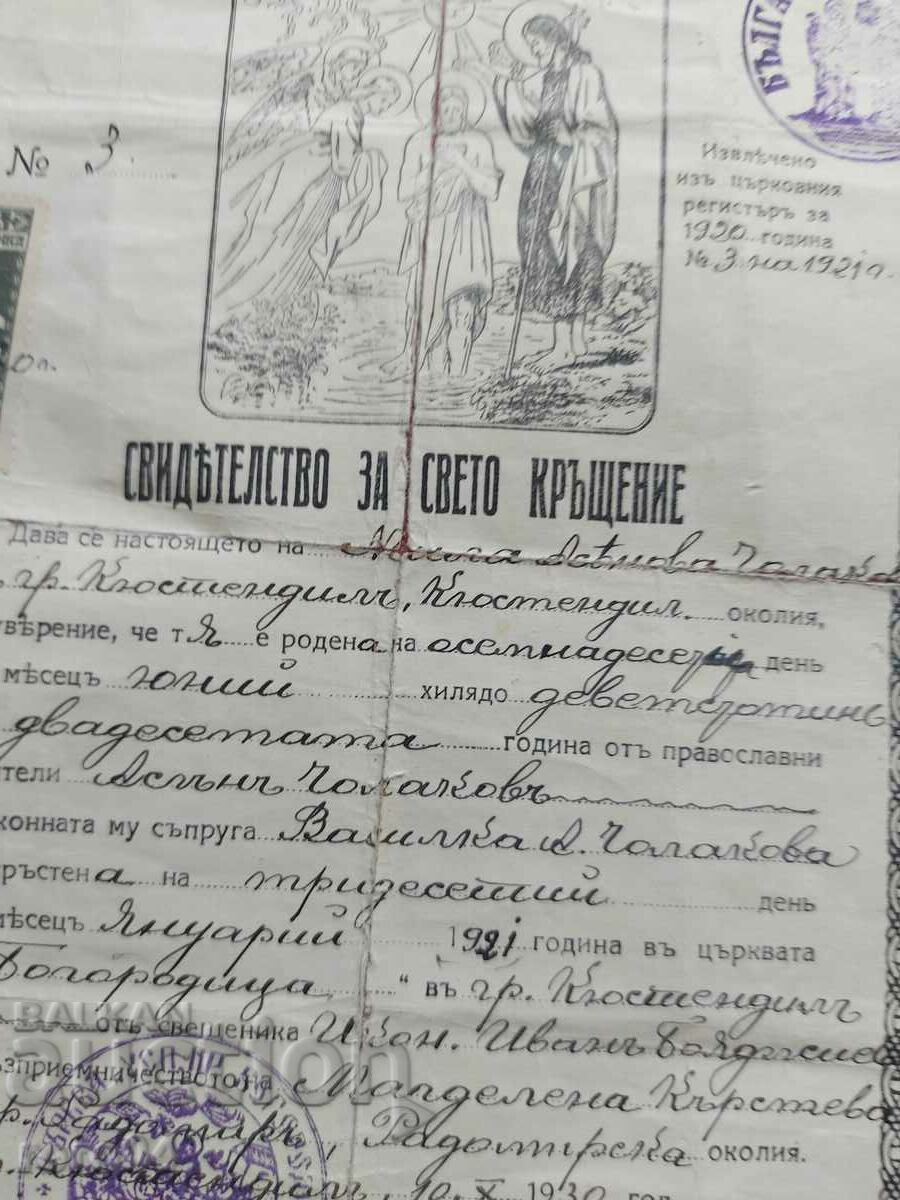 БЪЛГА
№ 3.
Извлѣчено
изъ църковния
регистъръ за
1920 година
№ 3 на 1921 г.
СВИДѢТЕЛСТВО ЗА СВЕТО КРЪЩЕНИЕ
Дава се настоящето на Асѣнова Чолако
гр. Кюстендилъ, Кюстендил. околия,
увѣрение, че тя е родена на осемнадесети день
мѣсецъ юний хилядо деветстотинъ
двадесетата година отъ православни
тели Асѣнъ Чолаковъ
конната му съпруга Василка А. Чолакова
ръстена на тридесетий день
мѣсецъ Януарий 1921 година въ църквата
Богородица " въ гр. Кюстендилъ
отъ свещеника Икон. Иванъ Бояджие
зприемничеството на Магделена Кърстева
гр. Радомиръ, Радомирска околия.
Кюстендилъ, 10. X 1930 год.
BALKAN
auction